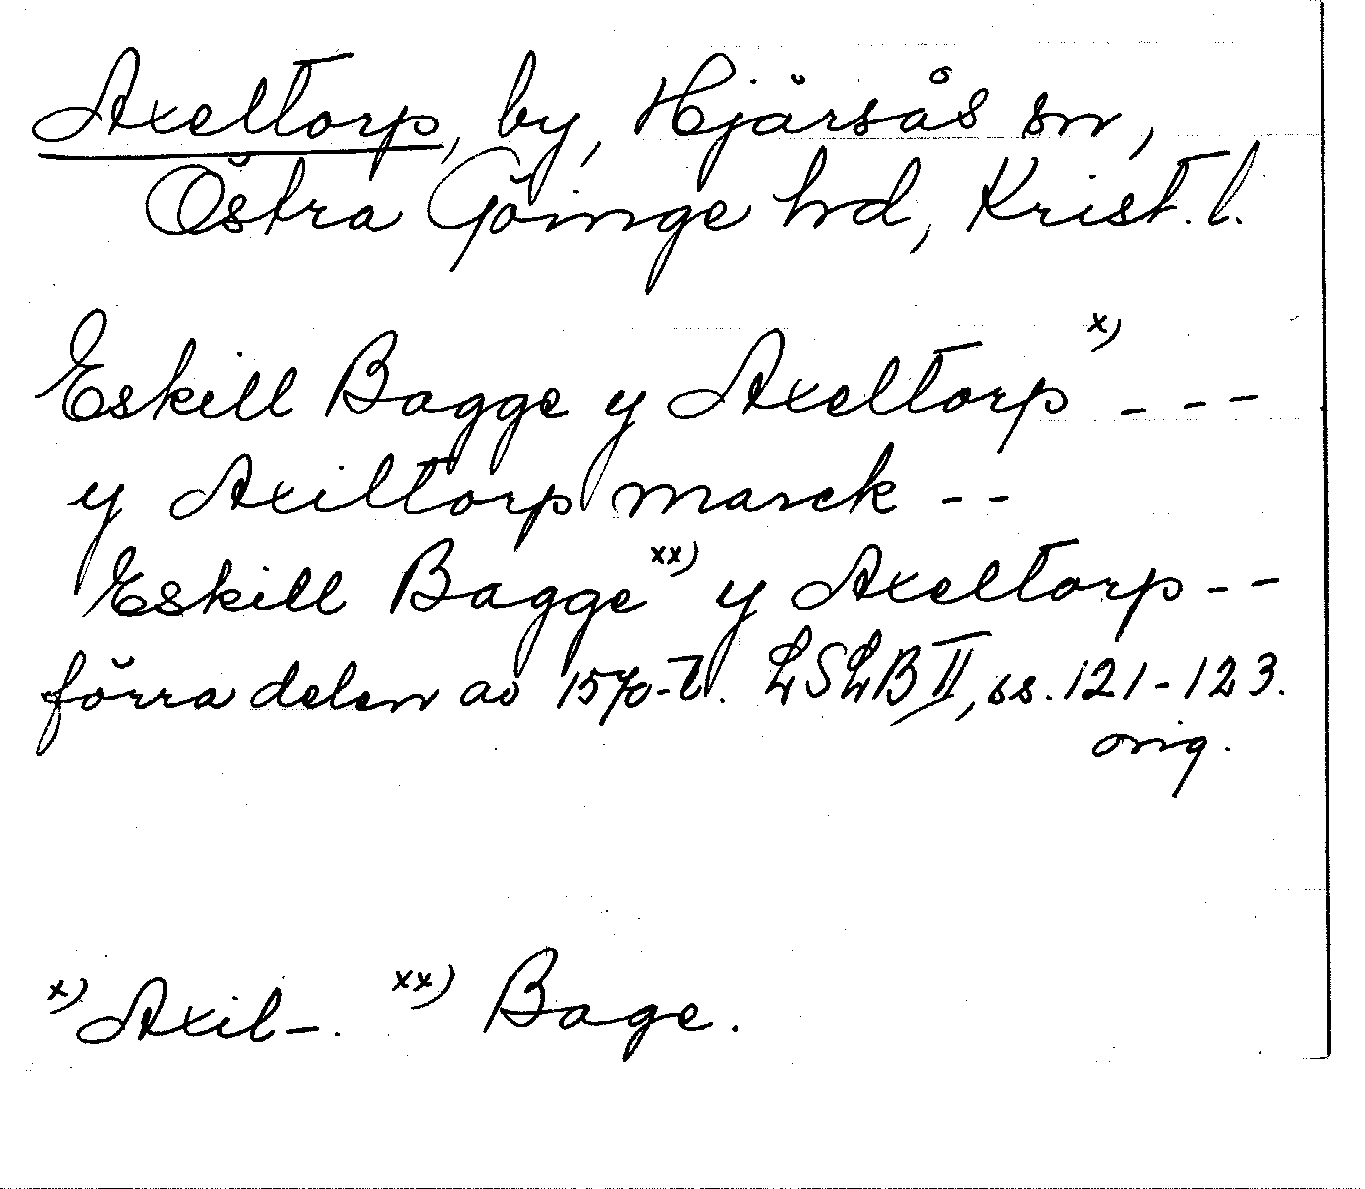 Axeltorp, by, Hjärsås sn,
Östra Göinge hrd, Krist. l.
Eskill Bagge y Axeltorp x) - - -
y Axiltorp marck - -
Eskill Bagge xx) y Axeltorp - -
förra delen av 1570-t. LSLB II, ss. 121-123.
orig.
x) Axil-. xx) Bage.